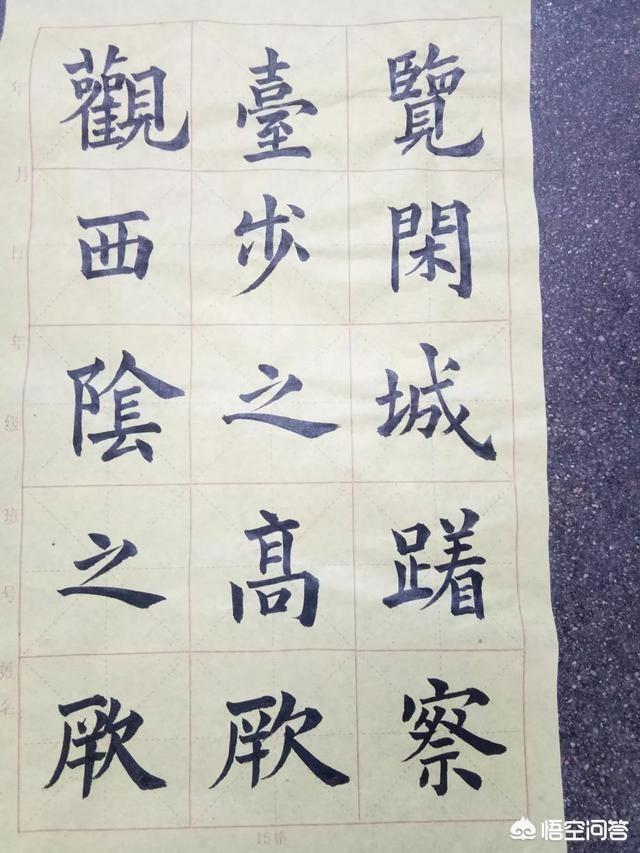 覽閑城躇察
臺步之高厥
觀西陰之厥
年月日年级班号姓名
15格
悟空问答